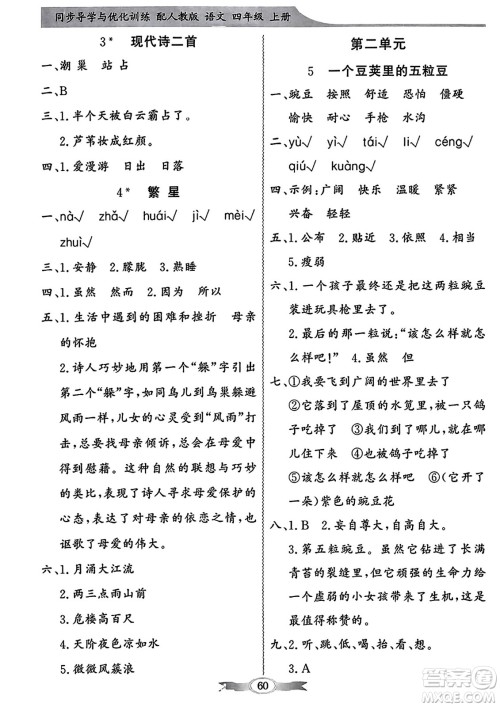 同步导学与优化训练 配人教版 语文 四年级 上册
3* 现代诗二首
一、潮 巢 站 占
二、B
三、1.半个天被白云霸占了。
2.芦苇妆成红颜。
四、1.爱漫游 日出 日落
4* 繁 星
一、nà√ zhǎ√ huái√ jì√ mèi√
zhuì√
三、1.安静 2.朦胧 3.熟睡
四、1.虽然 然而 2.因为 所以
五、1.生活中遇到的困难和挫折 母亲
的怀抱
2.诗人巧妙地用第一个“躲”字引出
第二个“躲”字,如同鸟儿到鸟巢躲避
风雨一样,儿女的心灵受到“风雨”打
击,会找母亲倾诉,在母爱中得到心灵
的慰藉。自然的联想与巧妙
的比拟体现了诗人寻求母爱保护的
心态,表达了对母亲的依恋之情,也
讴歌了母爱的伟大。
六、1.月涌大江流
2.两三点雨山前
3.危楼高百尺
4.天阶夜色凉如水
5.微微风簇浪
第二单元
5 一个豆荚里的五粒豆
一、豌豆 按照 舒适 恐怕 僵硬
愉快 耐心 手枪 水沟
二、yù√ yì√ tái√ lì√ céng√
qiú√ kuàng√
四、示例:广阔 快乐 温暖 紧紧
兴奋 轻轻
五、1.公布 2.贴近 3.依照 4.相当
5.瘦弱
六、1.一个孩子最终还是把这两粒豌豆
装进玩具枪里打出去了。
2.最后的两粒豌豆说:“该怎么样就怎
么样吧!” 4.虽然 但
七、①我要飞到广阔的世界里去
②它落到了屋顶的水笕里,被一只鸽
子吃掉了 ③走到哪儿,就在哪儿住
下来 ④也被鸽子吃掉了
⑤该怎么样就怎么样吧 ⑥它开了(
一朵)紫色的豌豆花
八、1.B 2.妄自尊大,自高自大。
3.第五粒豌豆。虽然它钻进了长满
青苔的裂缝里,但它努力生长,给
一个虚弱的小女孩带来了生机,是
值得称赞的。
九、2.听、跳、低、拉、抬、看。
3.A
60